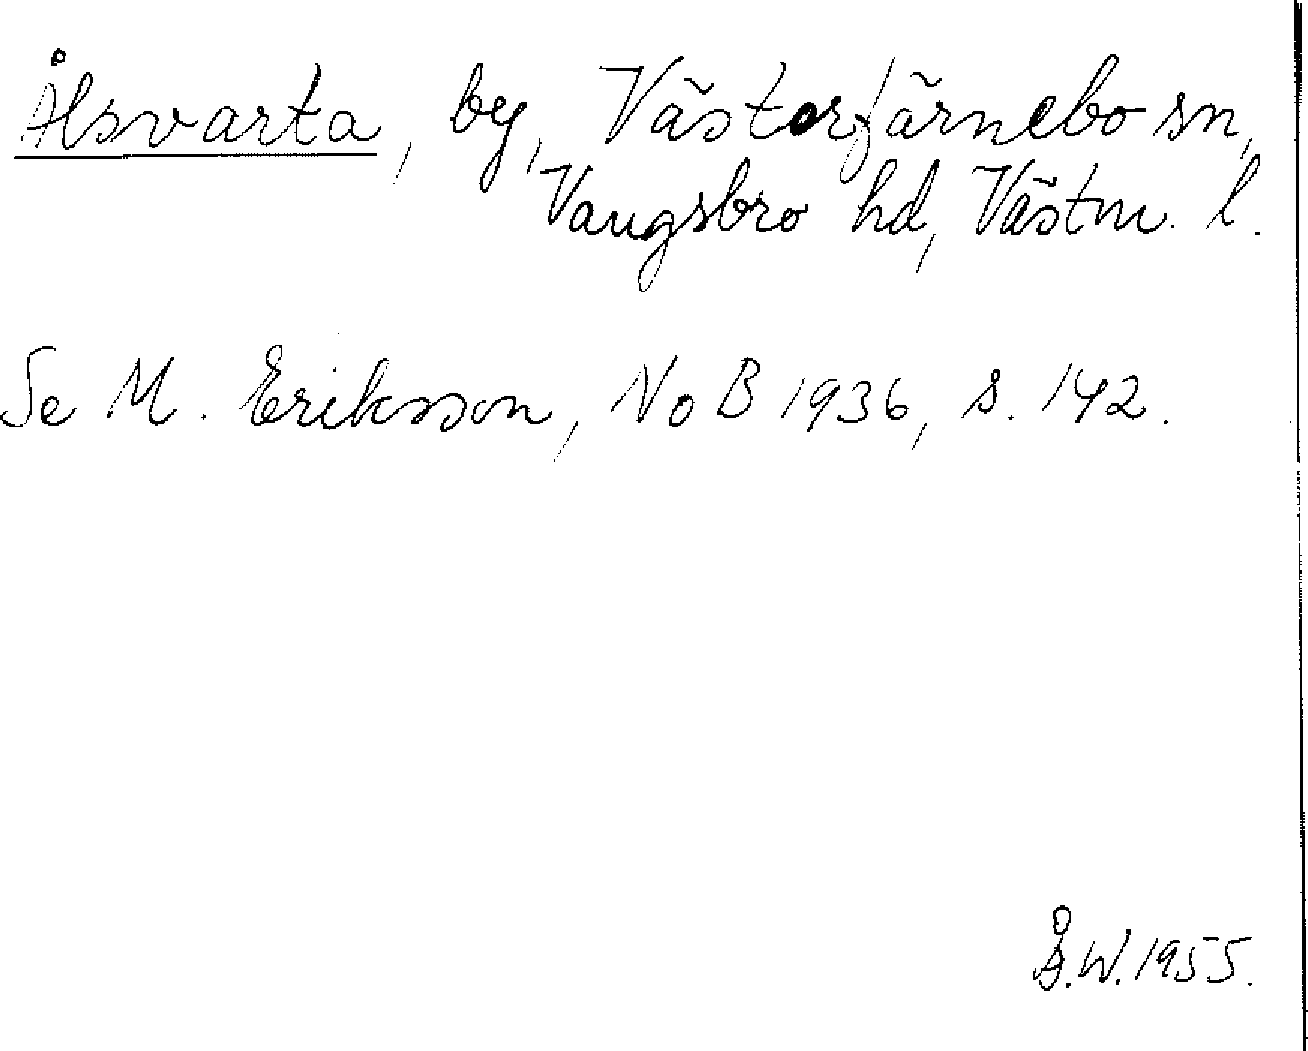 Ålsvarta, by, Västerfärnebo sn,
Vangsbro hd, Västm. l.
Se M. Eriksson, NoB 1936, s. 142.
Å.W. 1955.